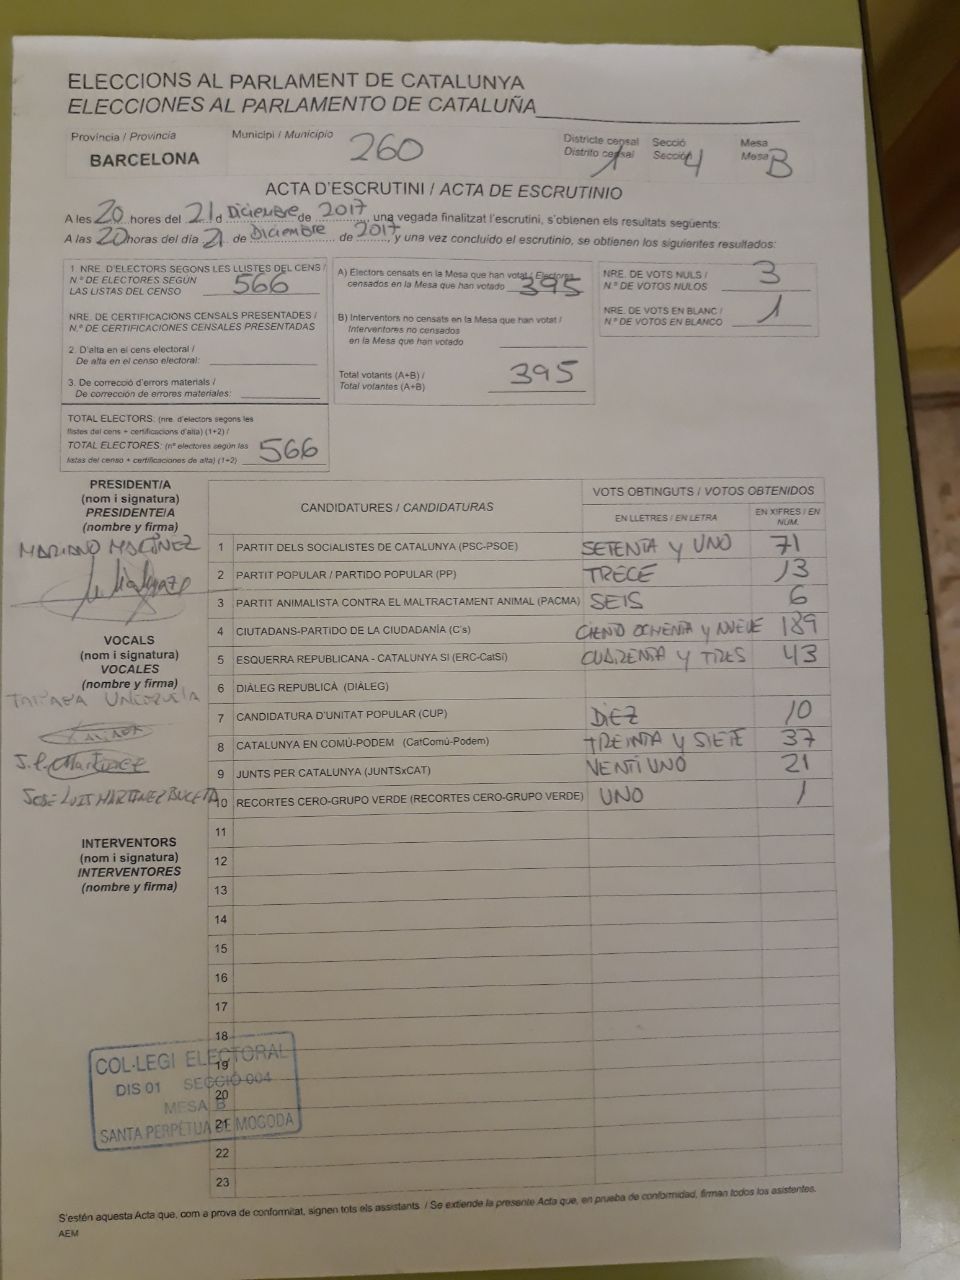 ELECCIONS AL PARLAMENT DE CATALUNYA
ELECCIONES AL PARLAMENTO DE CATALUÑA
Província / Provincia
BARCELONA
Municipi / Municipio
260
Districte censal
Distrito censal
1
Secció
Sección
4
Mesa
Mesa
B
ACTA D'ESCRUTINI / ACTA DE ESCRUTINIO
A les 20 hores del 21 d Diciembre de 2017, una vegada finalitzat l'escrutini, s'obtienen els resultats següents:
A las 20 horas del día 21 de Diciembre de 2017, y una vez concluido el escrutinio, se obtienen los siguientes resultados:
1. NRE. D'ELECTORS SEGONS LES LLISTES DEL CENS /
N.º DE ELECTORES SEGÚN
LAS LISTAS DEL CENSO
566
NRE. DE CERTIFICACIONS CENSALS PRESENTADES /
N.º DE CERTIFICACIONES CENSALES PRESENTADAS
2. D'alta en el cens electoral /
De alta en el censo electoral:
3. De correcció d'errors materials /
De corrección de errores materiales:
TOTAL ELECTORS: (nre. d'electors segons les
llistes del cens + certificacions d'alta) (1+2) /
TOTAL ELECTORES: (nº electores según las
listas del censo + certificaciones de alta) (1+2)
566
A) Electors censats en la Mesa que han votat / Electores
censados en la Mesa que han votado
395
B) Interventors no censats en la Mesa que han votat /
Interventores no censados
en la Mesa que han votado
Total votants (A+B) /
Total votantes (A+B)
395
NRE. DE VOTS NULS /
N.º DE VOTOS NULOS
3
NRE. DE VOTS EN BLANC /
N.º DE VOTOS EN BLANCO
1
PRESIDENT/A
(nom i signatura)
PRESIDENTE/A
(nombre y firma)
MARIANO MARTÍNEZ
VOCALS
(nom i signatura)
VOCALES
(nombre y firma)
JOSE LUIS MARTINEZ BUCETA
INTERVENTORS
(nom i signatura)
INTERVENTORES
(nombre y firma)
CANDIDATURES / CANDIDATURAS
VOTS OBTINGUTS / VOTOS OBTENIDOS
EN LLETRES / EN LETRA
EN XIFRES / EN NÚM.
1 PARTIT DELS SOCIALISTES DE CATALUNYA (PSC-PSOE) SETENTA y UNO 71
2 PARTIT POPULAR / PARTIDO POPULAR (PP) TRECE 13
3 PARTIT ANIMALISTA CONTRA EL MALTRACTAMENT ANIMAL (PACMA) SEIS 6
4 CIUTADANS-PARTIDO DE LA CIUDADANÍA (C's) CIENTO OCHENTA y NUEVE 189
5 ESQUERRA REPUBLICANA - CATALUNYA SÍ (ERC-CatSí) CUARENTA y TRES 43
6 DIÀLEG REPUBLICÀ (DIÀLEG)
7 CANDIDATURA D'UNITAT POPULAR (CUP) DIEZ 10
8 CATALUNYA EN COMÚ-PODEM (CatComú-Podem) TREINTA y SIETE 37
9 JUNTS PER CATALUNYA (JUNTSxCAT) VENTIUNO 21
10 RECORTES CERO-GRUPO VERDE (RECORTES CERO-GRUPO VERDE) UNO 1
11
12
13
14
15
16
17
18
19
20
21
22
23
COL·LEGI ELECTORAL
DIS 01 SECCIÓ 004
MESA B
SANTA PERPÈTUA DE MOGODA
S'estén aquesta Acta que, com a prova de conformitat, signen tots els assistants. / Se extiende la presente Acta que, en prueba de conformidad, firman todos los asistentes.
AEM